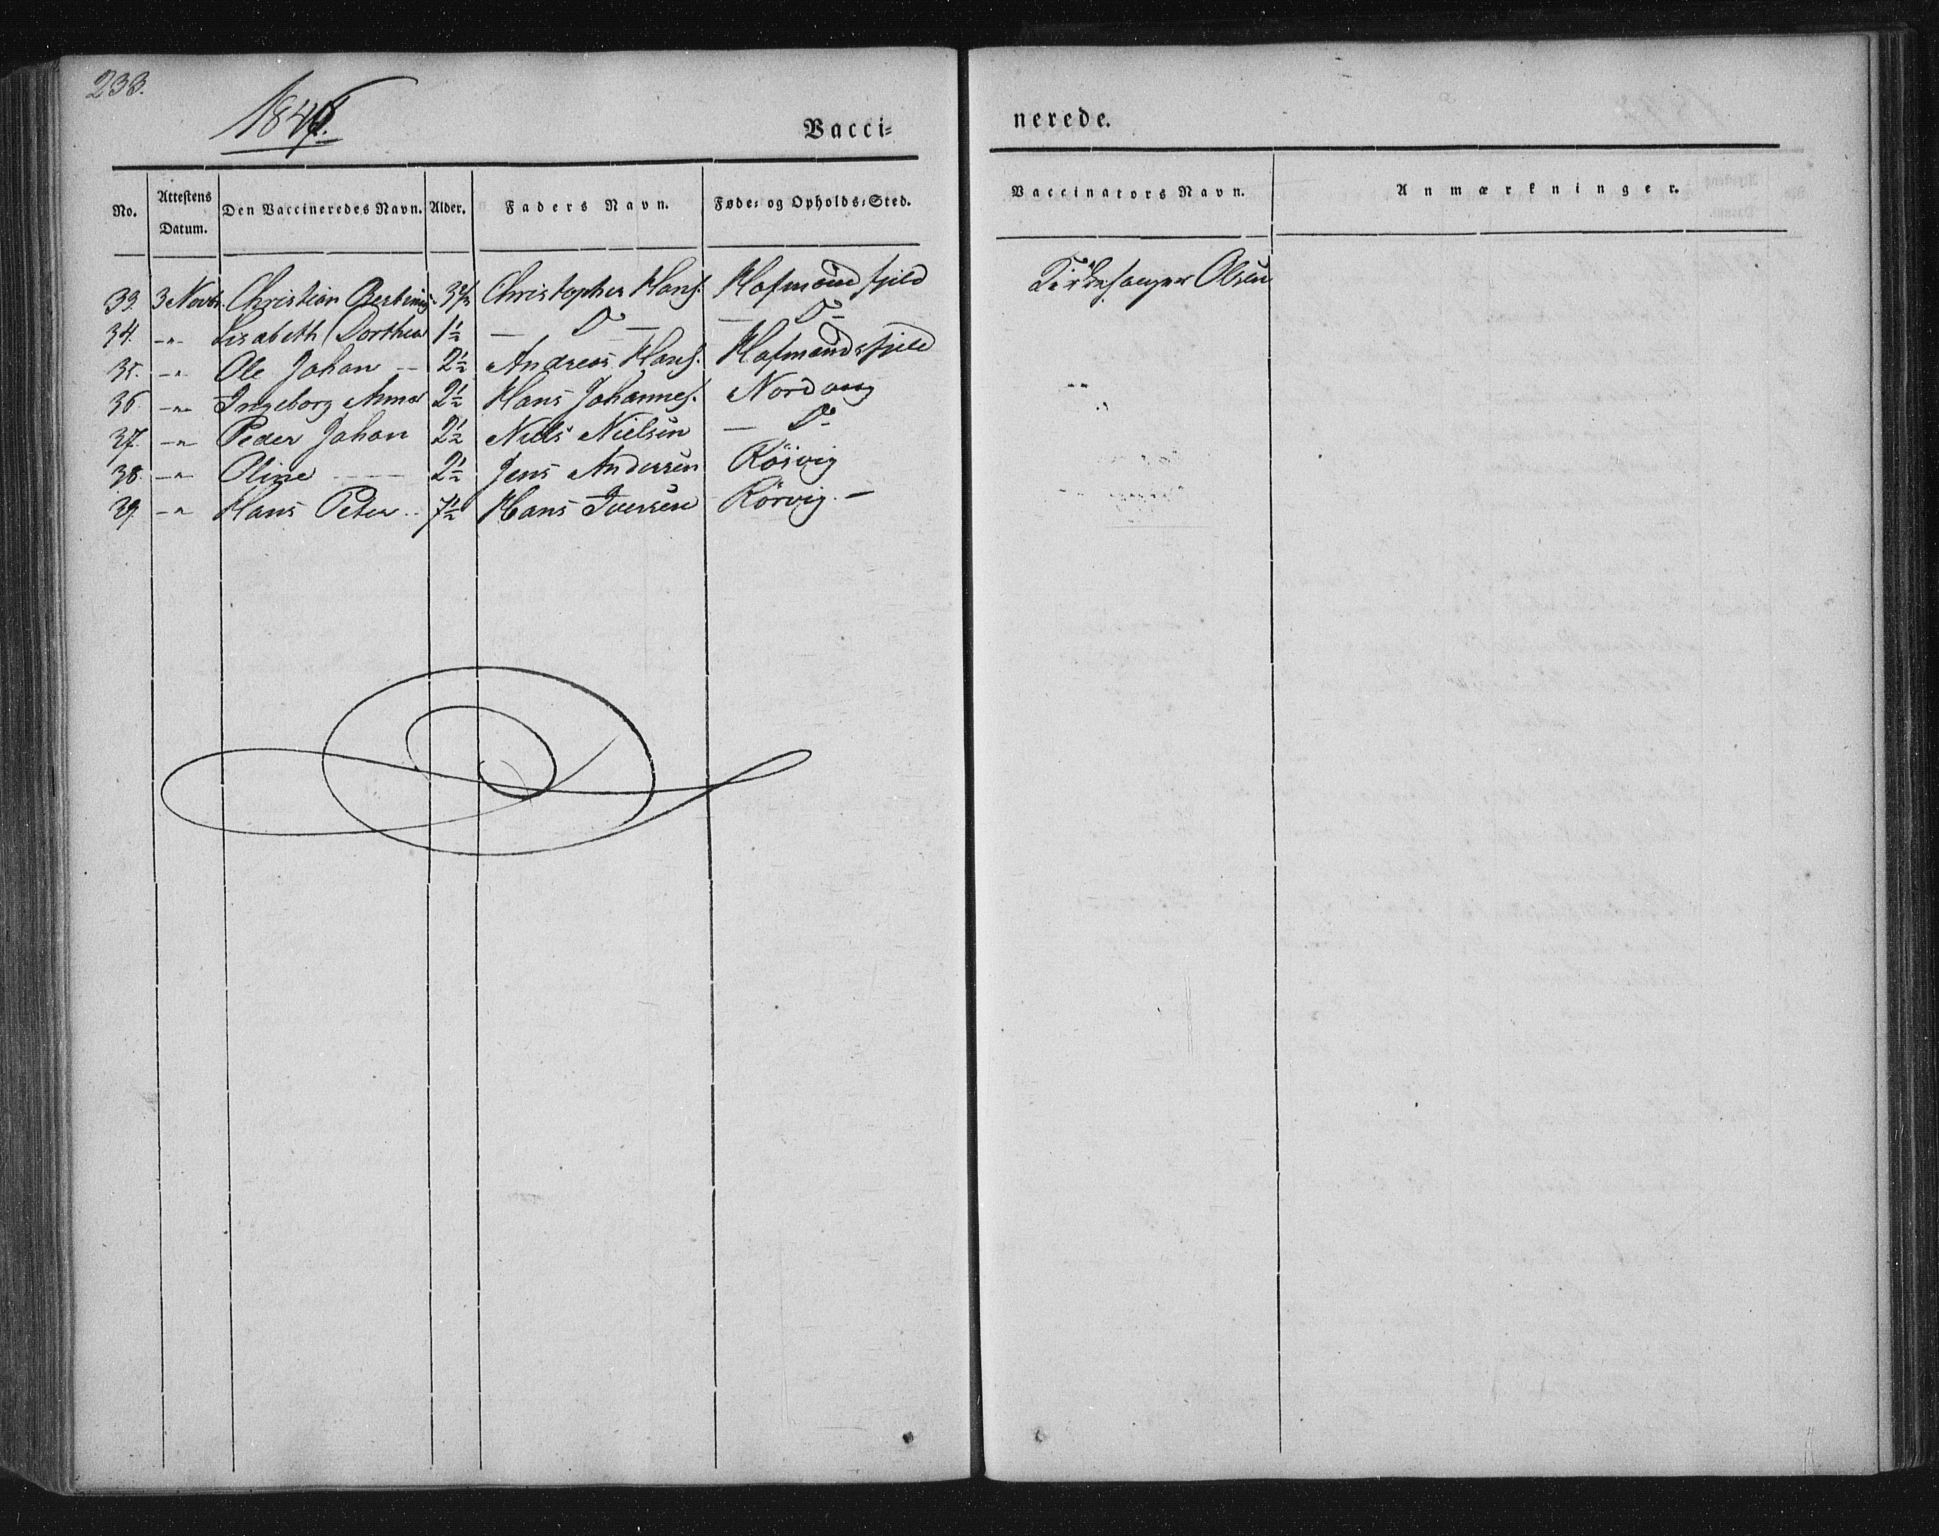 233.
1846.
Vacci= nerede.
No. Attestens Datum. Den Vaccineredes Navn. Alder. Faders Navn. Føde= og Opholds=Sted. Vaccinators Navn. Anmærkninger.
33. 3 Novbr. Christian 3½ Christopher Hans. Hafmandfjeld Kirkesanger Olsen
34. -"- Lisabeth Dorthea 1½ — Do — — Do -
35. -"- Ole Johan — 2½ Andreas Hans. Hafmandsfjeld
36. -"- Ingeborg Anna 2½ Hans Johannes. Nordvaag "
37. -"- Peder Johan 2½ Niels Nielsen — Do -
38. -"- Oline — 2½ Jens Andersen Rösvig
39. -"- Hans Peter .. 7½ Hans Iversen Rörvig. —